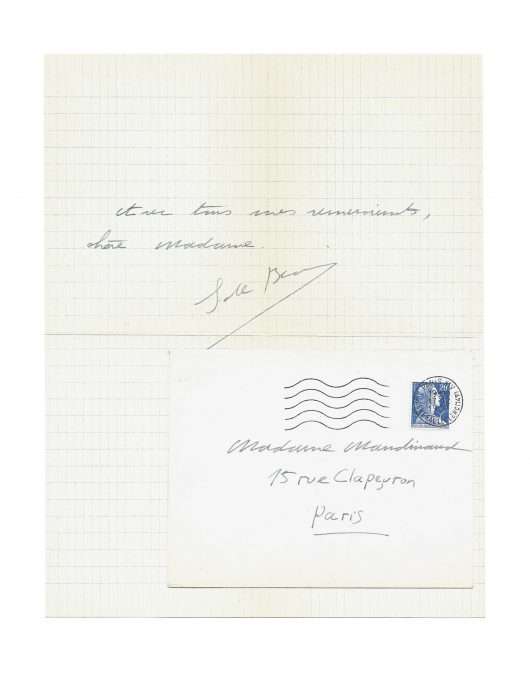 et avec tous mes remerciements,
chère Madame.
20
Madame Mandinaud
15 rue Clapeyron
Paris